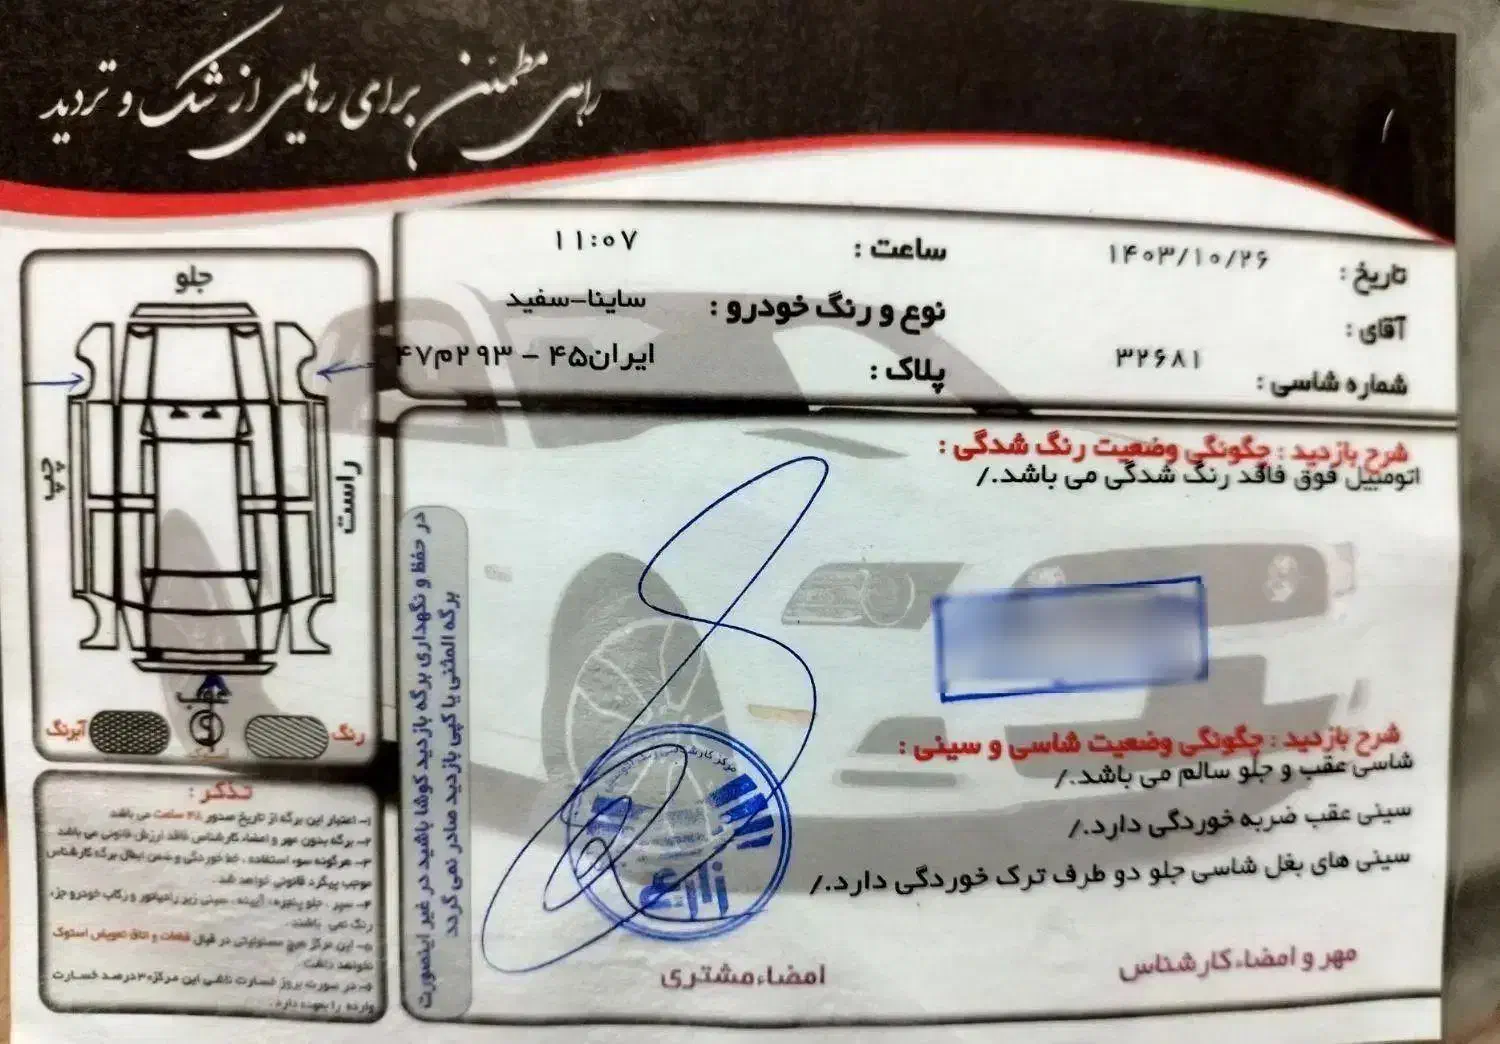 راهی مطمئن برای رهایی از شک و تردید
تاریخ : ۱۴۰۳/۱۰/۲۶
ساعت : ۱۱:۰۷
آقای :
نوع و رنگ خودرو : ساینا-سفید
شماره شاسی : ۳۲۶۸۱
پلاک : ایران۴۵ - ۲۹۳م۴۷
جلو
چپ
راست
عقب
رنگ
آبرنگ
شرح بازدید : چگونگی وضعیت رنگ شدگی :
اتومبیل فوق فاقد رنگ شدگی می باشد./
شرح بازدید : چگونگی وضعیت شاسی و سینی :
شاسی عقب و جلو سالم می باشد./
سینی عقب ضربه خوردگی دارد./
سینی های بغل شاسی جلو دو طرف ترک خوردگی دارد./
مهر و امضاء کارشناس
امضاء مشتری
در حفظ و نگهداری برگه بازدید کوشا باشید در غیر اینصورت
برگه المثنی یا کپی بازدید صادر نمی گردد
تذکر :
۱- اعتبار این برگه از تاریخ صدور ۴۸ ساعت می باشد
۲- برگه بدون مهر و امضاء کارشناس فاقد ارزش قانونی می باشد
۳- هرگونه سوء استفاده ، خط خوردگی و ضمن ابطال برگه کارشناس
موجب پیگرد قانونی خواهد شد .
۴- سپر ، جلو پنجره ، آیینه ، سینی زیر رادیاتور و رکاب خودرو جزء
رنگ نمی باشند .
۵- این مرکز هیچ مسئولیتی در قبال قطعات و اتاق تعویض استوک
نخواهد داشت .
۶- در صورت بروز خسارت ناشی این مرکز ۳۰ درصد خسارت
وارده را بعهده دارد .